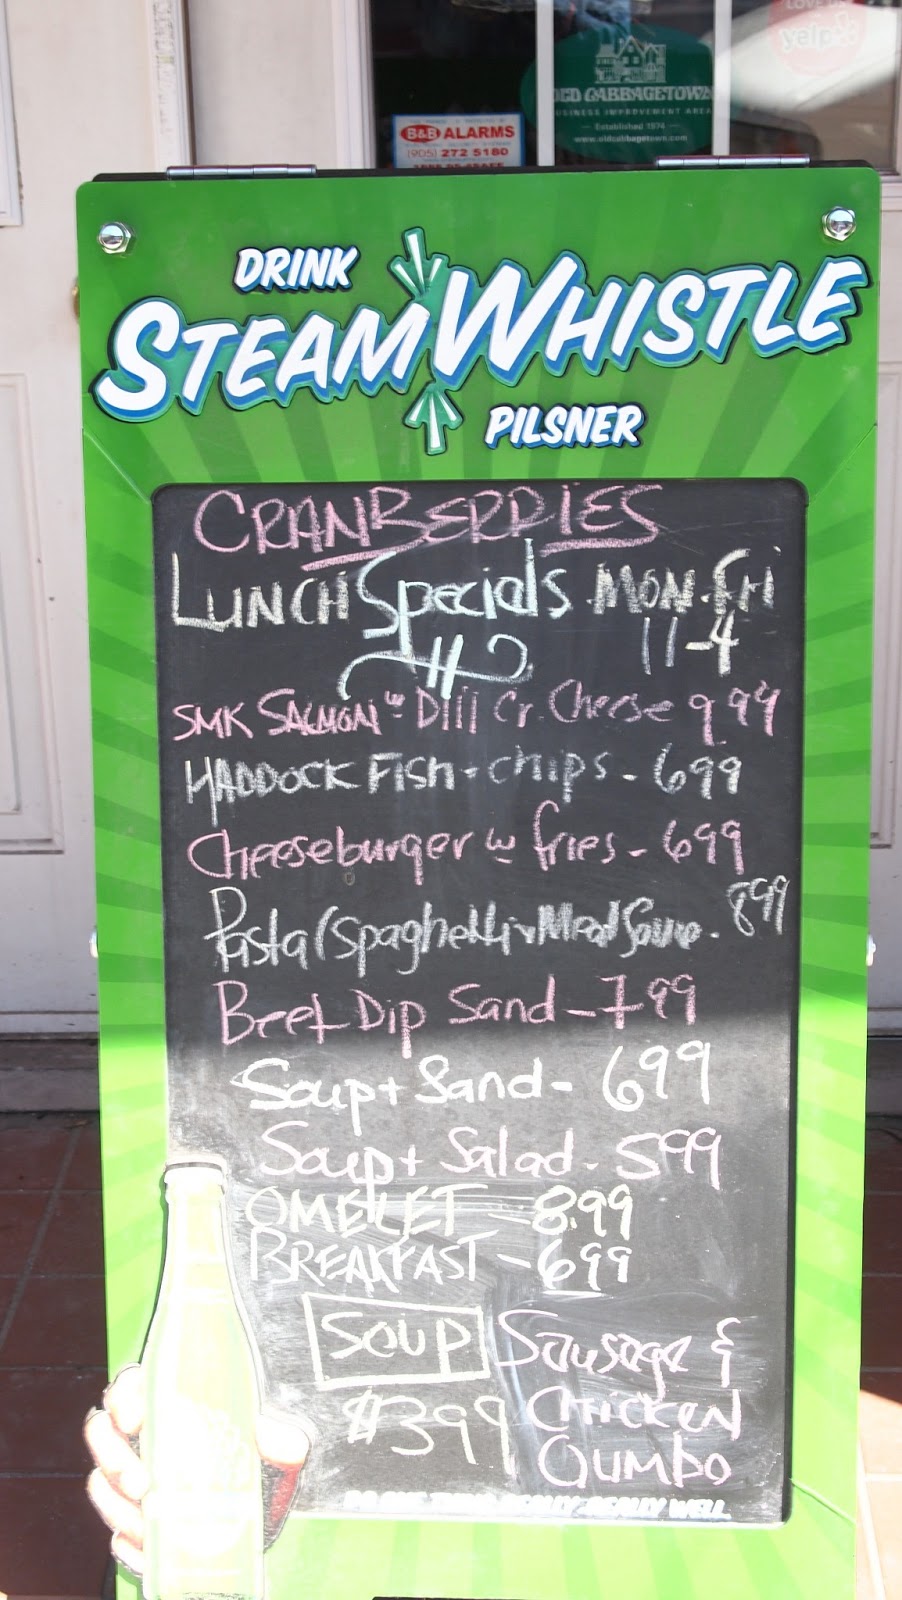 LOVE US
yelp
OLD CABBAGETOWN
BUSINESS IMPROVEMENT AREA
Established 1974
www.oldcabbagetown.com
B&B ALARMS
(905) 272 5180
DRINK
STEAMWHISTLE
PILSNER
CRANBERRIES
LUNCH Specials MON-Fri
11-4
SMK SALMON w Dill Cr. Cheese 9 99
HADDOCK FISH - chips - 6 99
Cheeseburger w fries - 6 99
Pasta (Spaghetti - Meat Sauce - 8 99
Beef Dip Sand - 7 99
Soup + Sand - 6 99
Soup + Salad - 5 99
OMELET - 8.99
BREAKFAST - 6 99
SOUP Sausage &
$3 99 CHICKEN
GUMBO
REALLY, REALLY WELL.